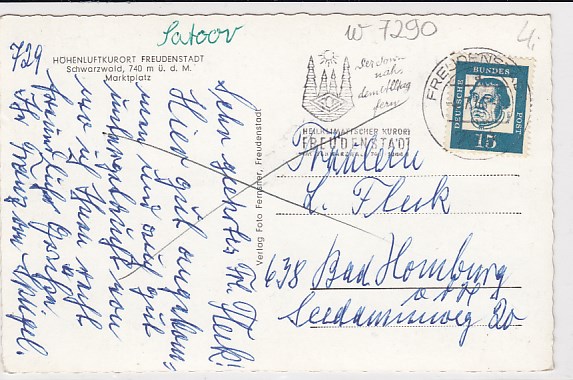 Satoov
W 7290
729
HÖHENLUFTKURORT FREUDENSTADT
Schwarzwald, 740 m ü. d. M.
Marktplatz
Der Sonne
nah,
dem Alltag
fern
HEILKLIMATISCHER KURORT
FREUDENSTADT
FREUDENST
DEUTSCHE BUNDES POST
15
Verlag Foto Fernauer, Freudenstadt
Sehr geehrtes Frl. Fleck!
Hier gut angekom-
men und auch gut
untergebracht von
wo ich Ihnen recht
freundliche Grüße
Ihr
Fräulein
L. Fleck
638 Bad Homburg
v. d. H.
Seedammweg